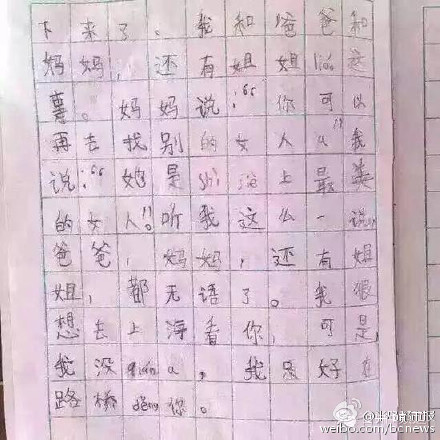 下来了。我和爸爸和
妈妈，还有姐姐liáo这
事。妈妈说：“你可以
再去找别的女人a”我
说：“她是shì jiè上最美
的女人”。听我这么一说，
爸爸，妈妈，还有姐
姐，都无语了。我狠
想去上海看你，可是
我没qián a，我只好在
路桥děng你。
weibo.com/bcnews